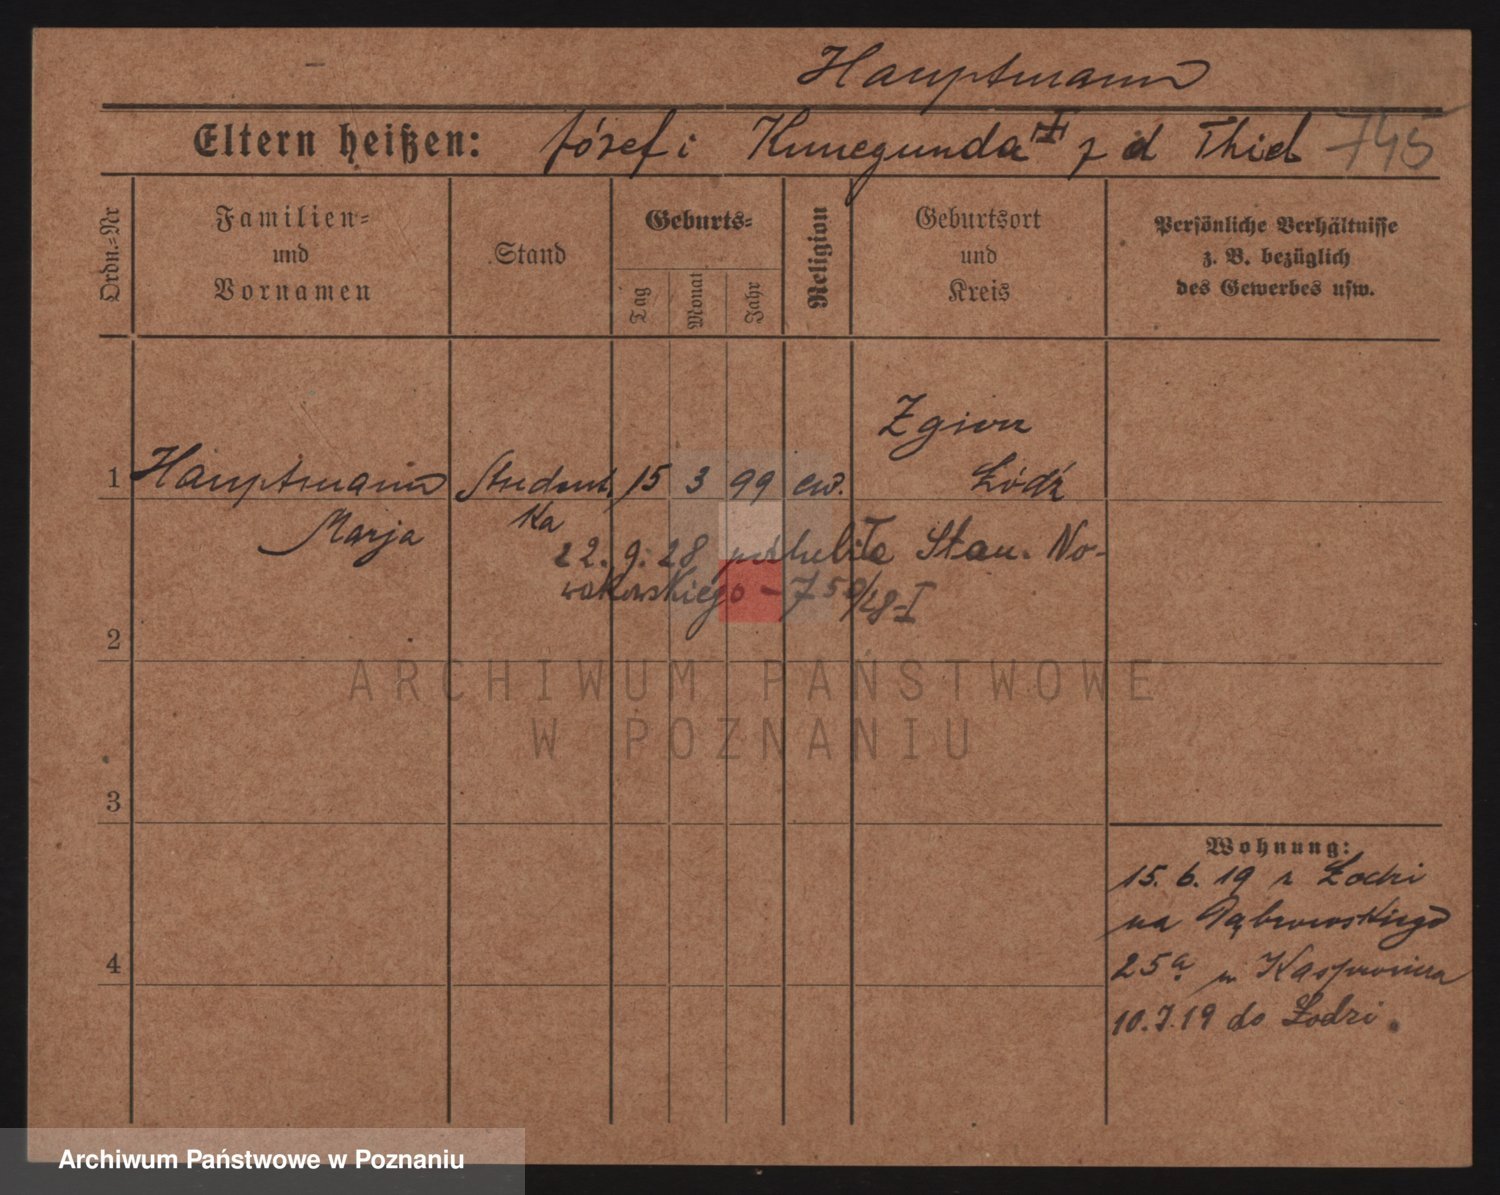 Hauptmann
Eltern heißen: Józef i Kunegunda z d Thiel 745
Ordn.=Nr
Familien=
und
Vornamen
Stand
Geburts=
Tag
Monat
Jahr
Religion
Geburtsort
und
Kreis
Persönliche Verhältnisse
z. B. bezüglich
des Gewerbes usw.
Zgierz
1 Hauptmann Student 15 3 99 ew. Łódź
Marja ka
22. 9. 28 poślubiła Stan. No-
wakowskiego - 750/28-I
2
ARCHIWUM PAŃSTWOWE
W POZNANIU
3
Wohnung:
15. 6. 19 z Łodzi
na Dąbrowskiego
25a u Kasprowicza
4
10.7.19 do Łodzi.
Archiwum Państwowe w Poznaniu